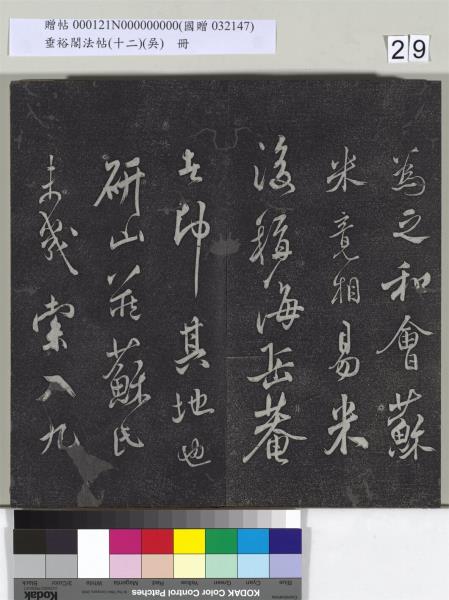 贈帖 000121N000000000(國贈 032147)
垂裕閣法帖(十二)(吳) 冊
29
為之和會蘇
米竟相易米
後稱海岳菴
者即其地也
研山藏蘇氏
未幾索入九
Kodak Color Control Patches
Blue Cyan Green Yellow Red Magenta White 3/Color Black